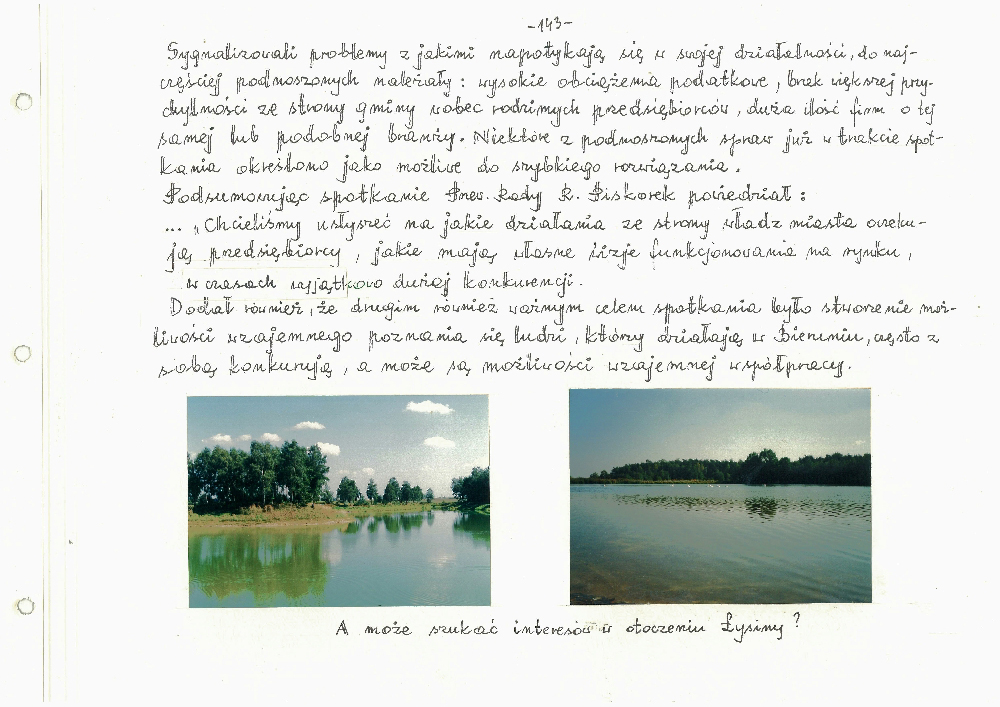 -143-
Sygnalizowali problemy z jakimi napotykają się w swojej działalności, do naj-
częściej podnoszonych należały: wysokie obciążenia podatkowe, brak większej przy-
chylności ze strony gminy wobec rodzimych przedsiębiorców, duża ilość firm o tej
samej lub podobnej branży. Niektóre z podnoszonych spraw już w trakcie spot-
kania określono jako możliwe do szybkiego rozwiązania.
Podsumowując spotkanie Przew. Rady R. Piskorek powiedział:
... „Chcieliśmy usłyszeć na jakie działania ze strony władz miasta oczeku-
ją przedsiębiorcy, jakie mają własne wizje funkcjonowania na rynku,
w czasach wyjątkowo dużej konkurencji.
Dodał również, że drugim również ważnym celem spotkania było stworzenie moż-
liwości wzajemnego poznania się ludzi, którzy działają w Bieruniu, często z
sobą konkurują, a może są możliwości wzajemnej współpracy.
A może szukać interesów w otoczeniu Łysiny?